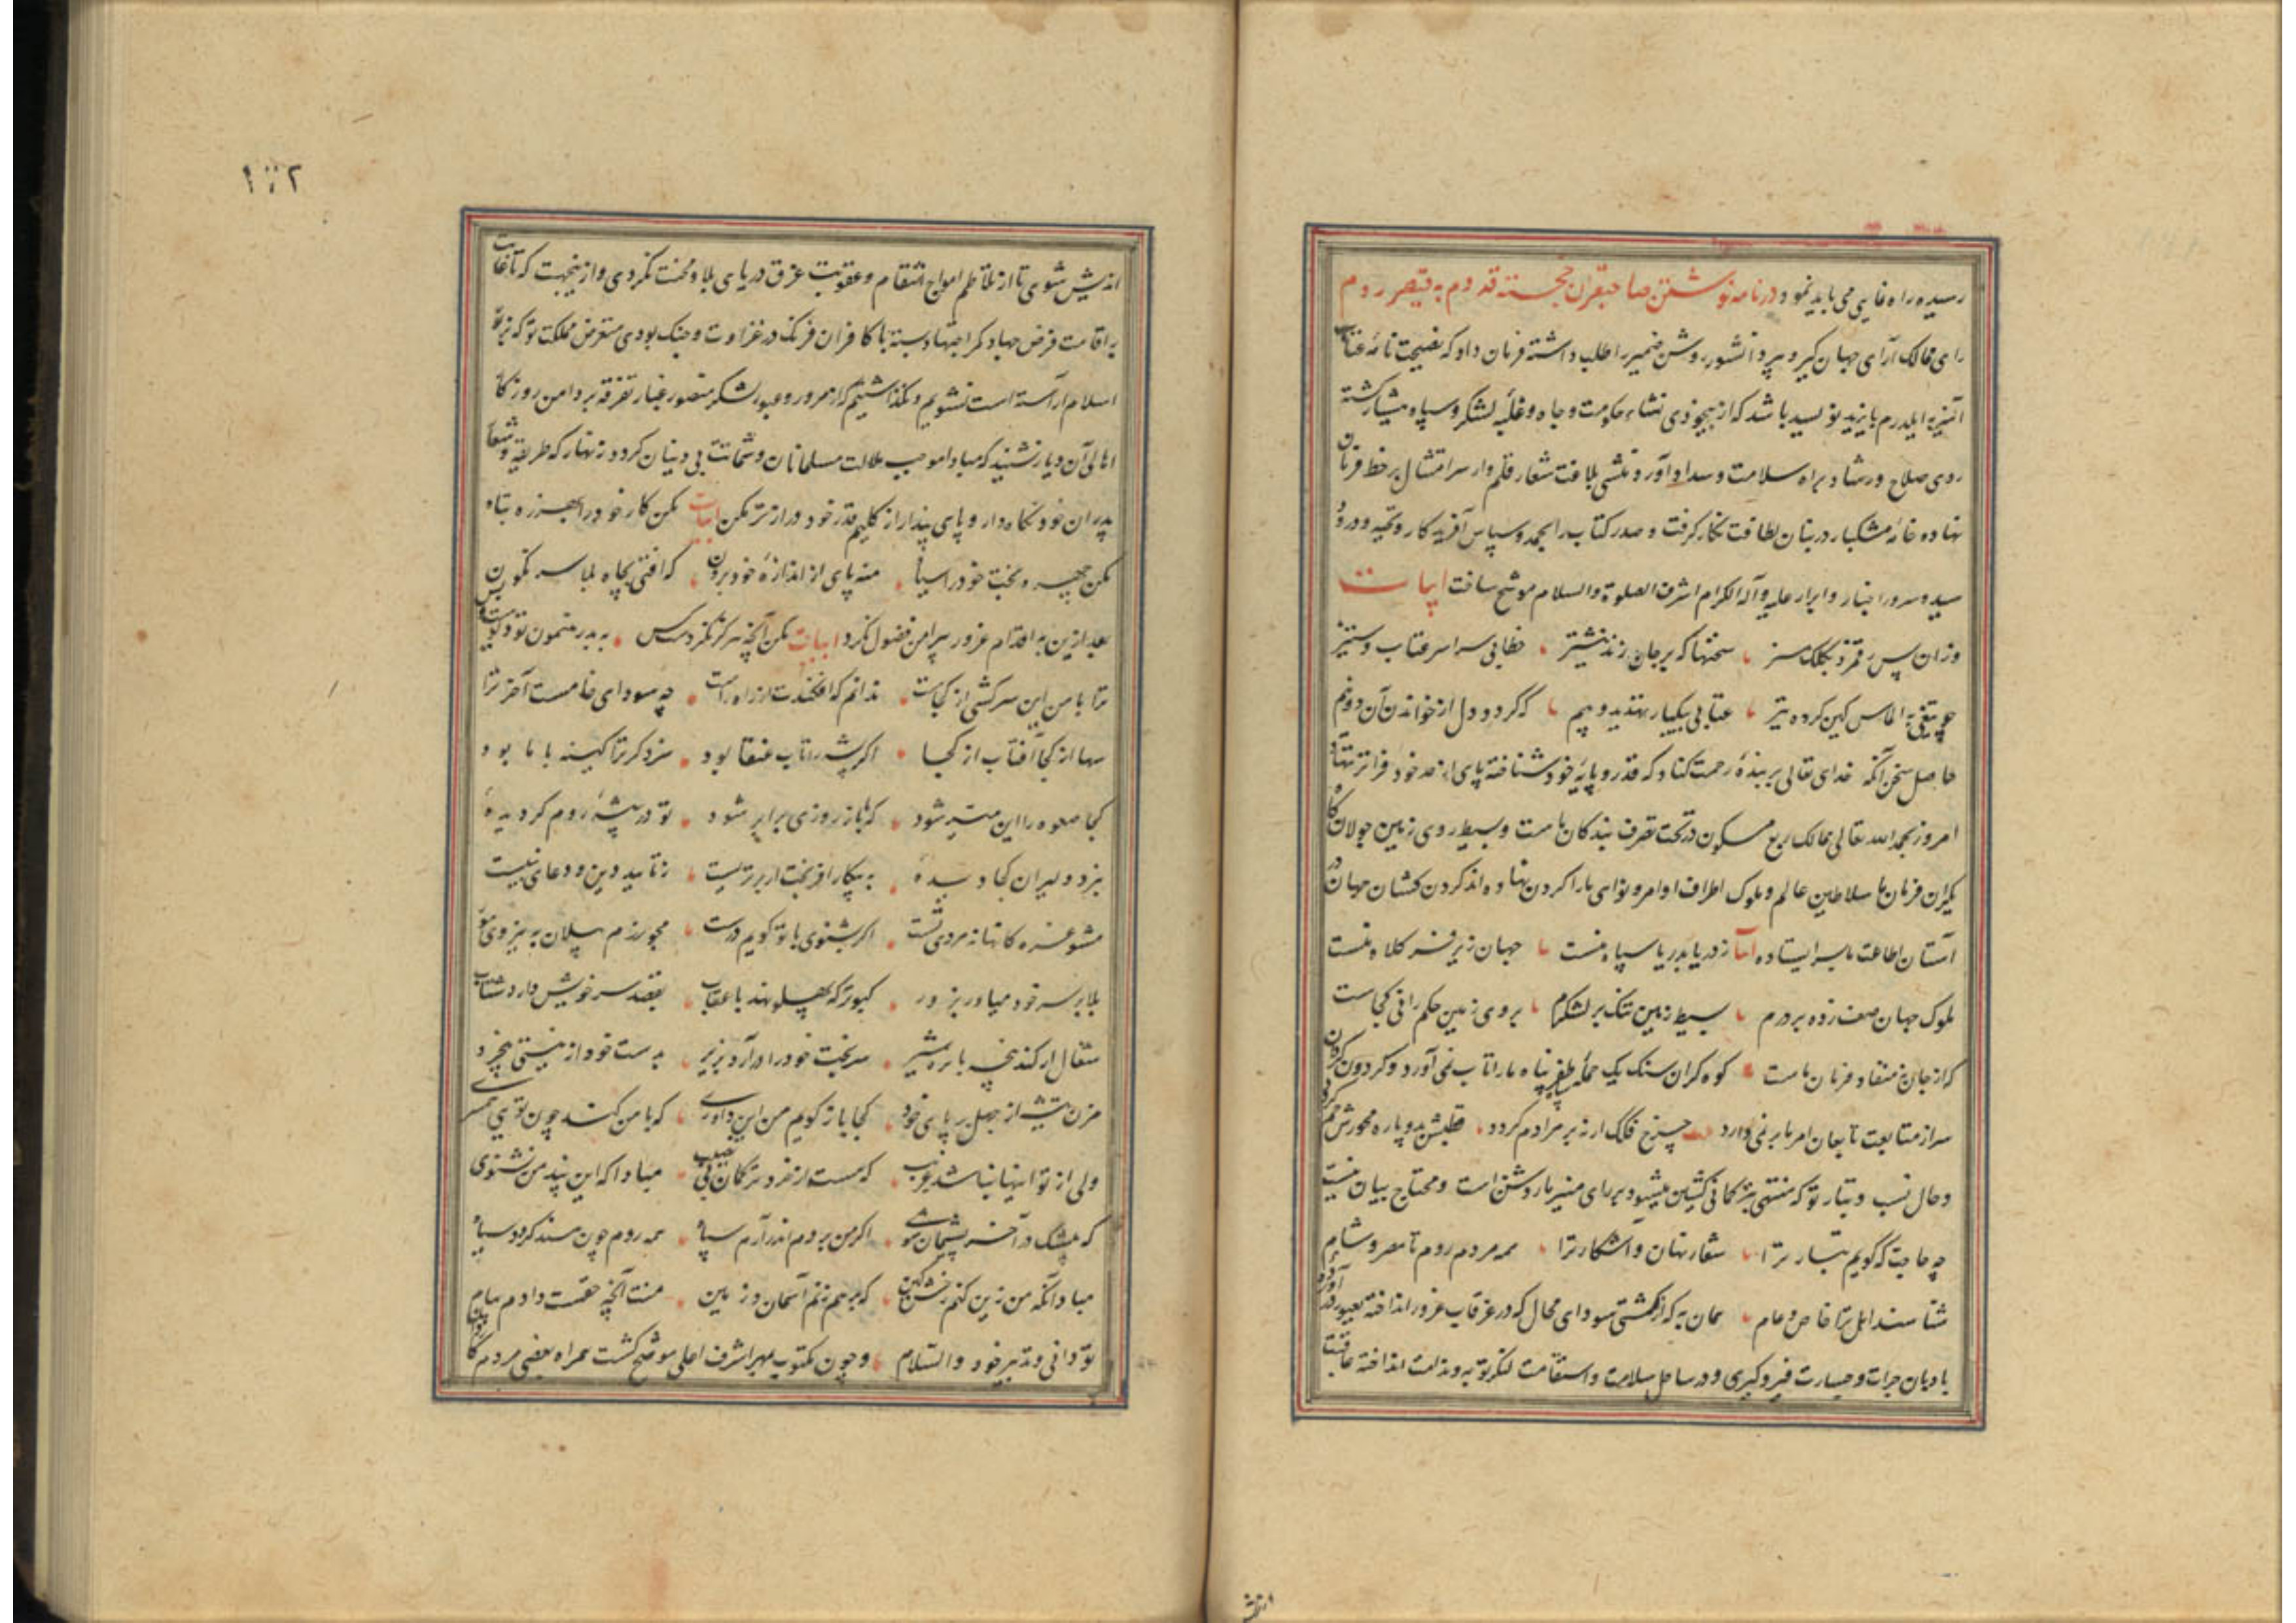 رسیده راه غایبی می باید نمود در نامه نوشتن صاحبقران خجسته قدوم به قیصر روم
رای ممالک آرای جهان گیر دبیر دانشور روشن ضمیر را طلب داشته فرمان داد که نصیحت نامهٔ عتاب
آمیز به ایلدرم بایزید نویسد باشد که از بیخودی نشاء حکومت و جاه و غلبهٔ لشکر و سپاه هشیار گشته
روی صلاح و رشاد براه سلامت و سداد آورد منشی بلاغت شعار قلم وار سر امتثال بر خط فرمان
نهاده خامهٔ مشکبار در بنان لطافت نگار گرفت و صدر کتاب را بحمد و سپاس آفریدگار و تحیه و درود
سید و سرور اخیار و ابرار علیه و آله الکرام اشرف الصلوة و السلام موشح ساخت ابیات
وزان پس رقم زد بکلک ستیز سخنها که بر جان زند نیشتر خطابی سراسر عتاب و ستیز
چو تیغی به الماس کین کرده تیز عتابی بیکبار تهدید و بیم که گردد دل از خواندن آن دو نیم
حاصل سخن آنکه خدای تعالی بر بندهٔ رحمت کناد که قدر و پایهٔ خود شناخته پای از حد خود فراتر ننهاد
امروز بحمد الله تعالی ممالک ربع مسکون در تحت تصرف بندگان ماست و بسیط روی زمین جولانگاه
یکران فرمان ما سلاطین عالم و ملوک اطراف اوامر و نواهی ما را گردن نهاده اند گردن کشان جهان در
آستان اطاعت ما سر ایستاده ابیات ز دریا بدریا سپاه منست جهان زیر فر کلاه منست
ملوک جهان صف زده بر درم بسیط زمین تنگ بر لشکرم بروی زمین حکم رانی کجاست
که از جان نه منقاد فرمان ماست کوه گران سنگ یک حملهٔ سپاه ظفر پناه ما را تاب نمی آورد و گردون گردان
سر از متابعت تابعان امر ما بر نمی دارد بیت چرخ فلک ار نه بر مرادم گردد قطبش بدو پاره محورش خم گردد
و حال نسب و تبار تو که منتهی بترکمانی کشتیبان میشود بر رای منیر ما روشن است و محتاج بیان نیست
چه حاجت که گویم تبار ترا شعار نهان و آشکار ترا همه مردم روم تا مصر و شام
شناسند اصل ترا خاص و عام همان به که از کشتی سودای محال که در غرقاب غرور انداخته بعبور در آورده
بادبان جرات و جسارت فرو گیری و در ساحل سلامت و استقامت لنگر توبه و ندامت انداخته عاقبت
انديش
١٠٢
اندیش شوی تا از تلاطم امواج انتقام و عقوبت غرق دریای بلا و محنت نگردی و از ینجهت که تا غایت
به اقامت فرض جهاد کمر اجتهاد بسته با کافران فرنگ در غزاوت و جنگ بودی متعرض مملکت تو که بزیور
اسلام آراسته است نشویم و نگذاشتیم که از مرور و عبور لشکر منصور غبار تفرقه بر دامن روزگار
اهالی آن دیار نشیند که مبادا موجب ملالت مسلمانان و شماتت بی دینان گردد زنهار که طریقه و شعار
پدران خود نگاه دار و پای پندار از گلیم قدر خود درازتر مکن ابیات مکن کار خود را بهرزه تباه
مکن چهرهٔ بخت خود را سیاه منه پای از اندازهٔ خود برون که افتی بچاه بلا سرنگون پس
بعد ازین به اقدام غرور پیرامن فضول نگرد ابیات مکن آنچه هرگز نکردست کس به بدرهنمون تو دیوست و بس
ترا با من این سرکشی از کجاست ندانم که افکندت از راه راست چه سودای خامست آخر ترا
سها از کجا آفتاب از کجا اگر پشه را تاب عنقا بود سزد گر ترا کینه با ما بود
کجا صعوه را این میسر شود که با باز روزی برابر شود تو در بیشهٔ روم گردیدهٔ
نبرد دلیران کجا دیدهٔ به پیکار اگر بختت ار برتریست ز تایید دین و دعای نبیست
مشو غره کانها نه مردی تست اگر بشنوی با تو گویم درست مجو رزم پیلان به نیروی مور
بلا بر سر خود میاور بزور کبوتر که پهلو زند با عقاب بقصد سر خویش دارد شتاب
شغال ار کند پنجه با نره شیر سر بخت خود را در آرد بزیر به دست خود از نیستی بیخرد
مزن تیشه از جهل بر پای خود کجا باز گویم من این داوری که با من کند چون تویی همسری
ولی از تو اینها نباشد غریب که هست از خرد ترکمان بی نصیب مبادا که این پند من نشنوی
که بیشک در آخر پشیمان شوی اگر من بروم اندر آرم سپاه همه روم چون هند گردد سیاه
مباد آنکه من زین کنم رخش کین که بر هم زنم آسمان و زمین منت آنچه حقست دادم پیام
تو دانی و تدبیر خود والسلام و چون مکتوب بمهر اشرف اعلی موشح گشت همراه بعضی مردم کاردان